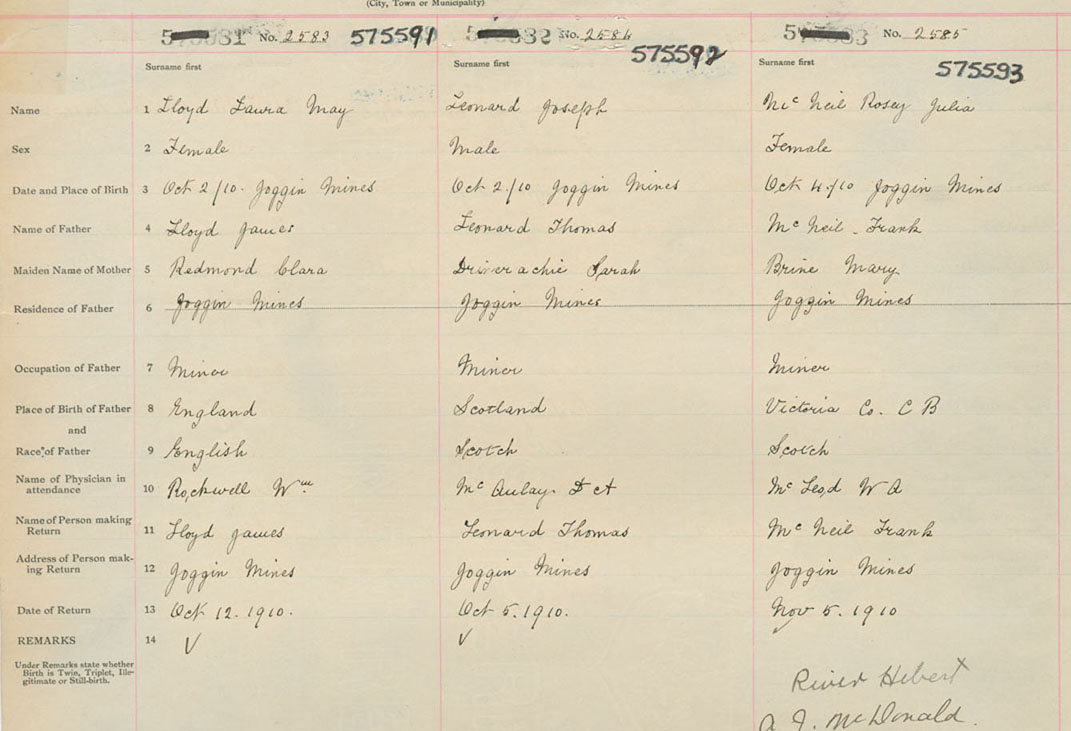 (City, Town or Municipality)
No. 2583 575591 No. 2584 575592 No. 2585 575593
Surname first Surname first Surname first
Name 1 Lloyd Laura May Leonard Joseph Mc Neil Rosey Julia
Sex 2 Female Male Female
Date and Place of Birth 3 Oct 2/10. Joggin Mines Oct 2./10 Joggin Mines Oct 4./10 Joggin Mines
Name of Father 4 Lloyd James Leonard Thomas Mc Neil - Frank
Maiden Name of Mother 5 Redmond Clara Sarah Brine Mary
Residence of Father 6 Joggin Mines Joggin Mines Joggin Mines
Occupation of Father 7 Miner Miner Miner
Place of Birth of Father 8 England Scotland Victoria Co. C B
and
Race of Father 9 English Scotch Scotch
Name of Physician in
attendance 10 Rockwell Wm Mc Aulay. Mc Leod W A
Name of Person making
Return 11 Lloyd James Leonard Thomas Mc Neil Frank
Address of Person mak-
ing Return 12 Joggin Mines Joggin Mines Joggin Mines
Date of Return 13 Oct 12. 1910. Oct 5. 1910. Nov 5. 1910
REMARKS 14 √ √
Under Remarks state whether
Birth is Twin, Triplet, Ille-
gitimate or Still-birth.
River Hebert
A. J. McDonald.